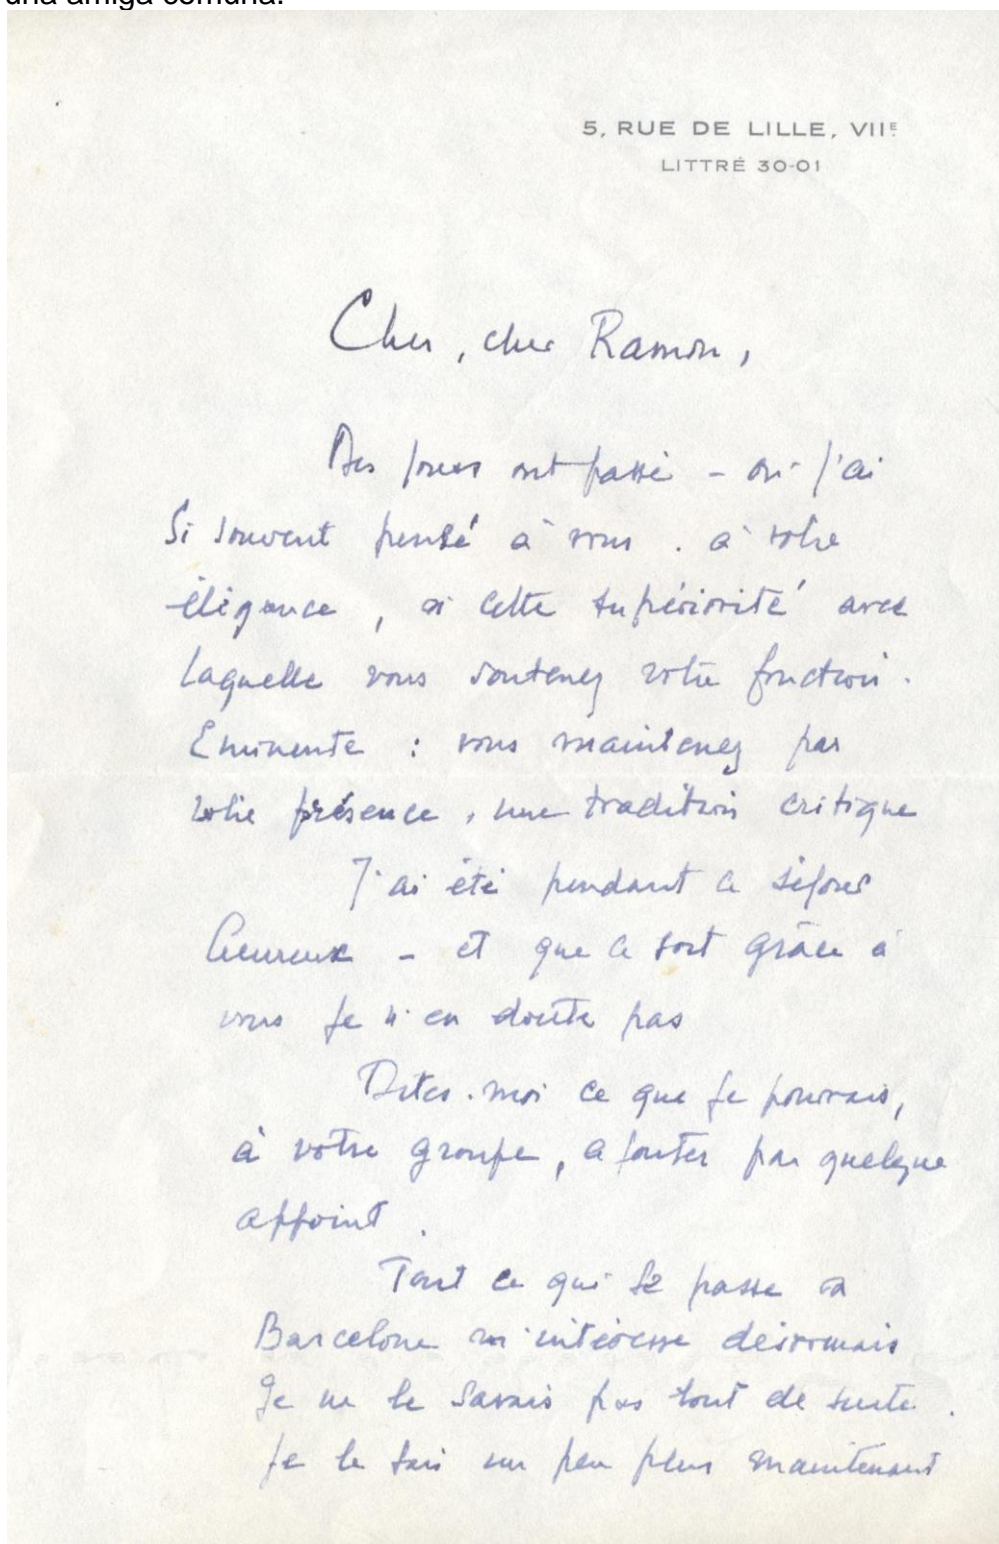 una amiga comuna.
5, RUE DE LILLE, VIIE
LITTRÉ 30-01
Cher, cher Ramon,
Des jours ont passé – où j'ai
si souvent pensé à vous. à votre
élégance, à cette supériorité avec
laquelle vous soutenez votre fonction.
Eminente : vous maintenez par
votre présence, une tradition critique
J'ai été pendant ce séjour
heureux – et que ce soit grâce à
vous je n'en doute pas
Dites-moi ce que je pourrais,
à votre groupe, ajouter par quelque
appoint.
Tout ce qui se passe à
Barcelone m'intéresse désormais
Je ne le savais pas tout de suite.
Je le sais un peu plus maintenant